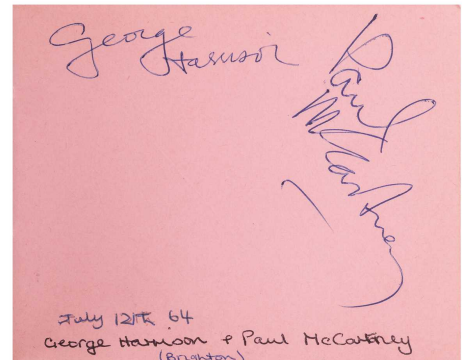 George
Harrison
Paul
McCartney
July 12th 64
George Harrison + Paul McCartney
(Brighton)